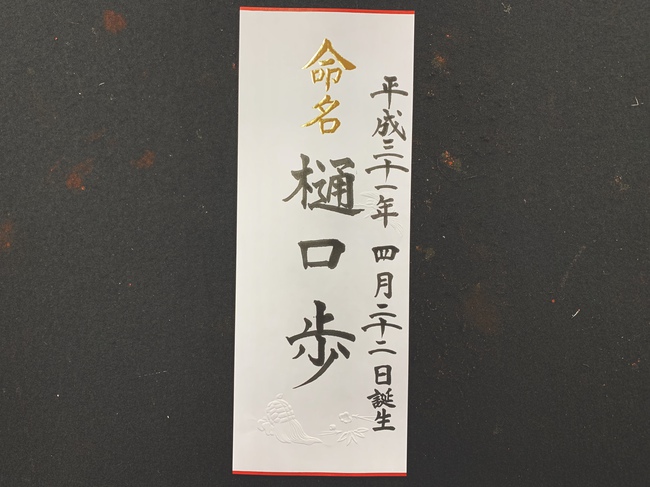 平成三十一年 四月二十二日誕生
命名
樋口歩